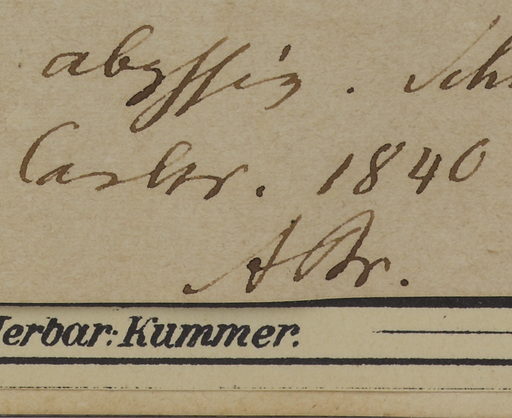 abyssin. Sch
Carlsr. 1840
A Br.
Herbar: Kummer.